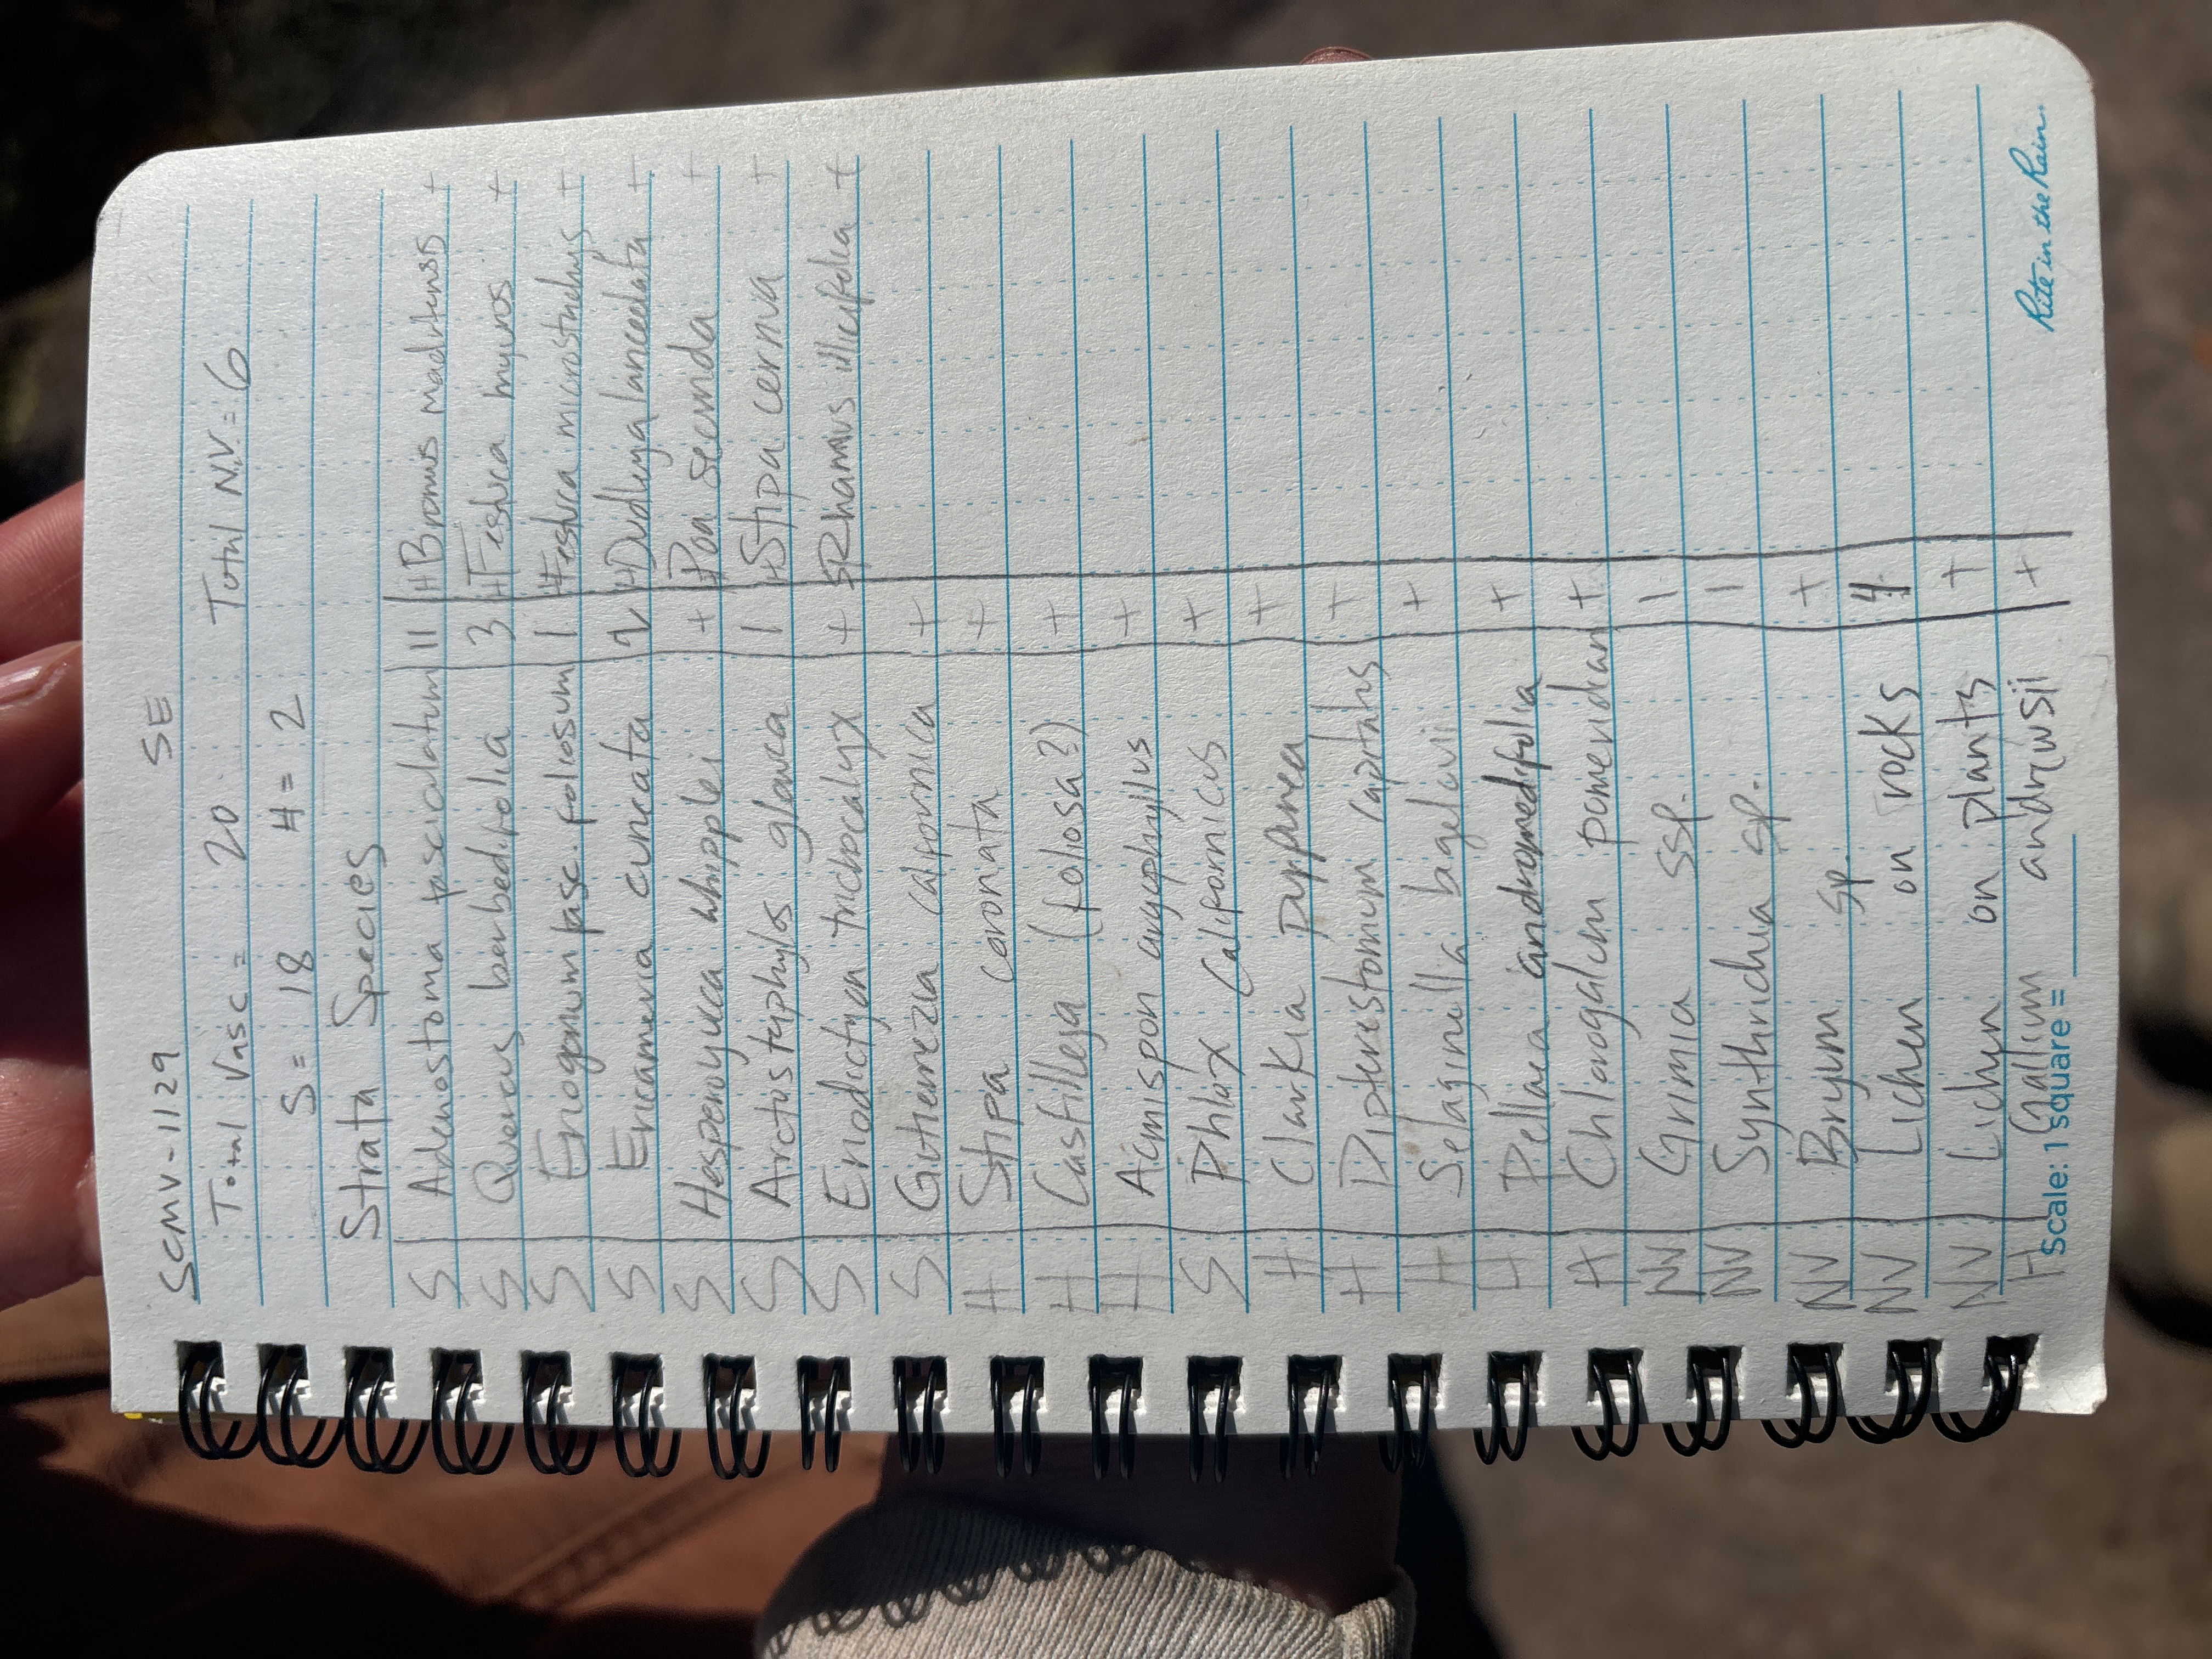 SCMV-1129 SE
Total Vasc = 20 Total N.V. = 6
S = 18 H = 2
Strata Species
S Adenostoma fasciculatum 11 H Bromus madritensis +
S Quercus berberidifolia 3 H Festuca myuros +
S Eriogonum fasc. foliosum 1 H Festuca microstachys +
S Ericameria cuneata 2 H Dudleya lanceolata +
S Hesperoyucca whipplei + H Poa secunda +
S Arctostaphylos glauca 1 H Stipa cernua +
S Eriodictyon trichocalyx + S Rhamnus illicifolia +
S Gutierrezia californica +
H Stipa coronata +
H Castilleja (foliosa?) +
H Acmispon argophyllus +
S Phlox Californicus +
H Clarkia Purpurea +
H Dipterostomum capitatus +
H Selaginella bigelovii +
H Pellaea andromedifolia +
H Chlorogalum pomeridian +
NV Grimia ssp. 1
NV Synthrichia sp. 1
NV Bryum sp. +
NV Lichen on rocks 4
NV Lichen on plants +
H Galium andrewsii +
Scale: 1 square =
Rite in the Rain.